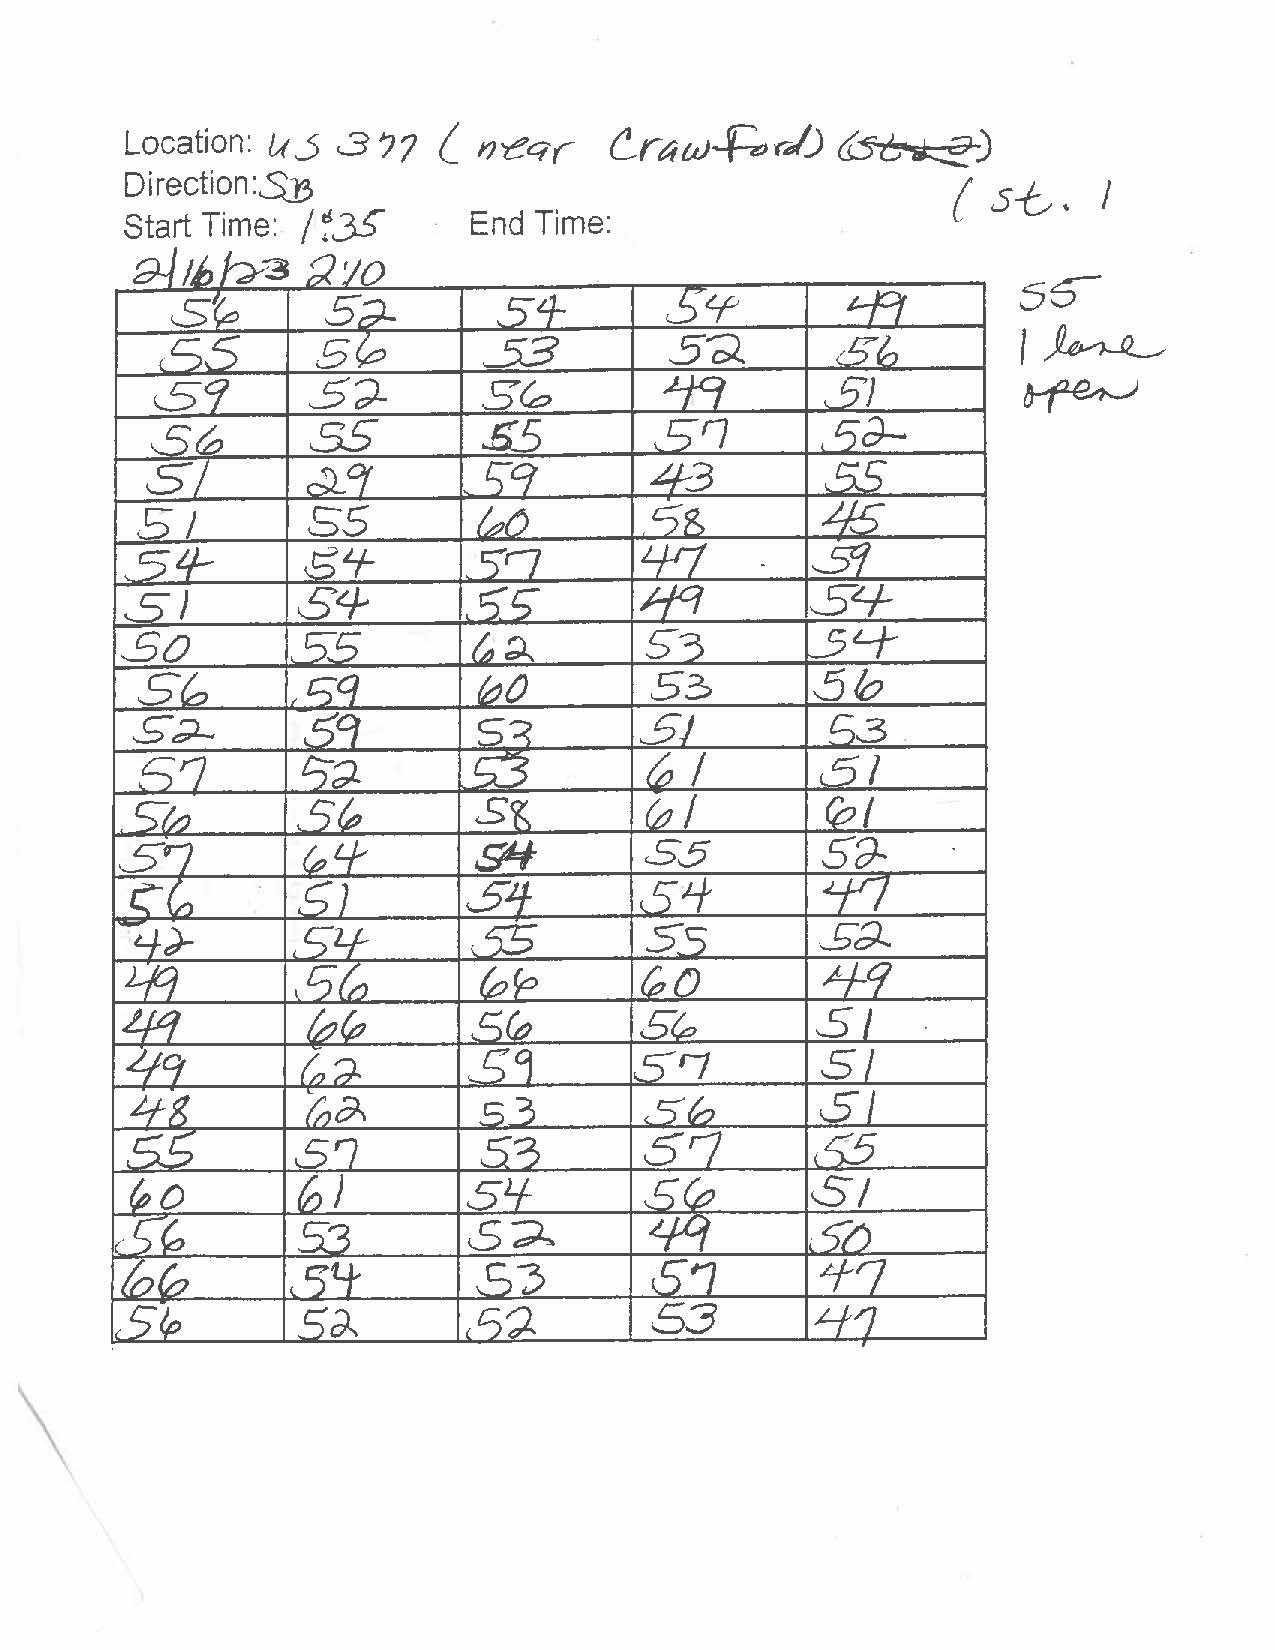 Location: US 377 ( near Crawford) (St. 2)
Direction: SB
( St. 1
Start Time: 1:35 End Time:
2/16/23 2:10
56 52 54 54 49
55
55 56 53 52 56
1 lane
59 52 56 49 51
open
56 55 55 57 52
51 29 59 43 55
51 55 60 58 45
54 54 57 47 59
51 54 55 49 54
50 55 62 53 54
56 59 60 53 56
52 59 53 51 53
57 52 53 61 51
56 56 58 61 61
57 64 54 55 52
56 51 54 54 47
42 54 55 55 52
49 56 66 60 49
49 66 56 56 51
49 62 59 57 51
48 62 53 56 51
55 57 53 57 55
60 61 54 56 51
56 53 52 49 50
66 54 53 57 47
56 52 52 53 47